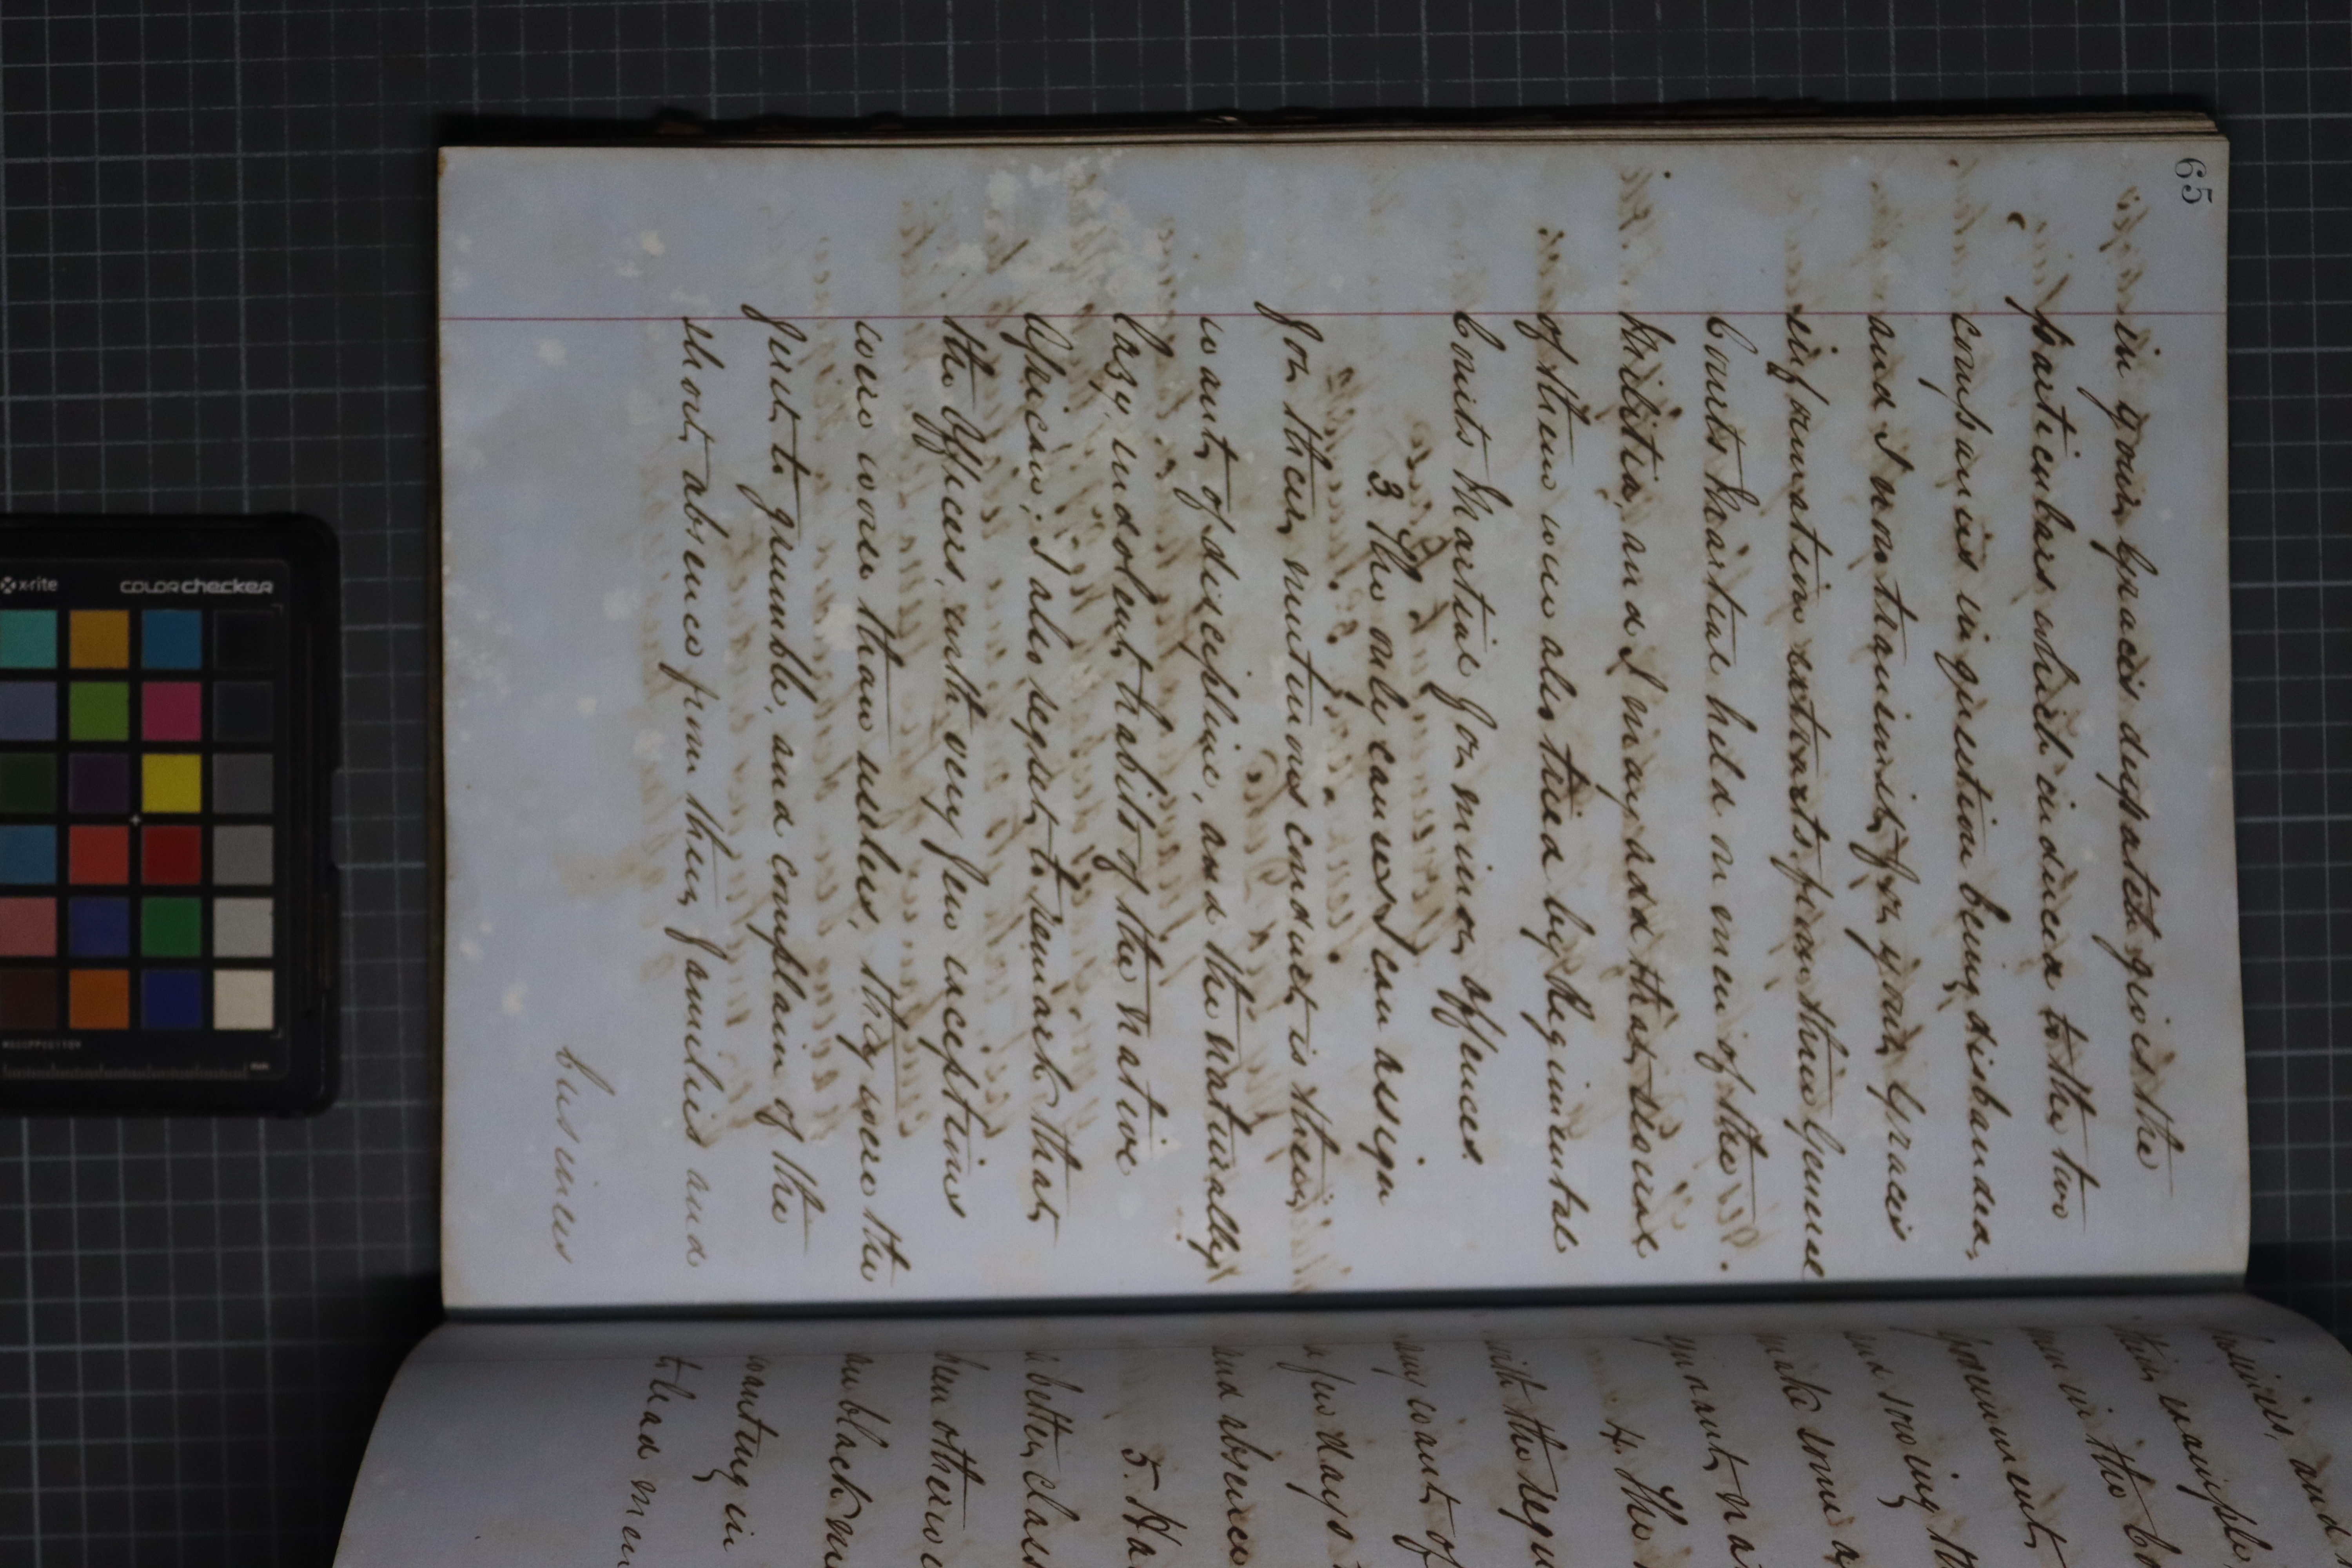 65
in your Grace's despatch gives the
particulars which induced to the two
companies in question being disbanded,
and I now transmit, for your Grace's
information extracts from three General
Courts Martial held on men of the
Militia, and I may add that several
of them were also tried by Regimental
Courts Martial for minor offences.
3. The only causes I can assign
for their mutinous conduct is their
want of discipline, and the naturally
lazy indolent habits of the native
African; I also regret to remark that
the Officers, with very few exceptions
were worse than useless, they were the
first to grumble, and complain of the
short absence from their families and
business
business, and
their example
men in the b
Government,
and sowing th
make some a
ignorant na
4. The
with the regu
any want of
a few days
and absence
5. Ha
a better class
been otherwi
wanting in
t had men
x-rite
colorchecker